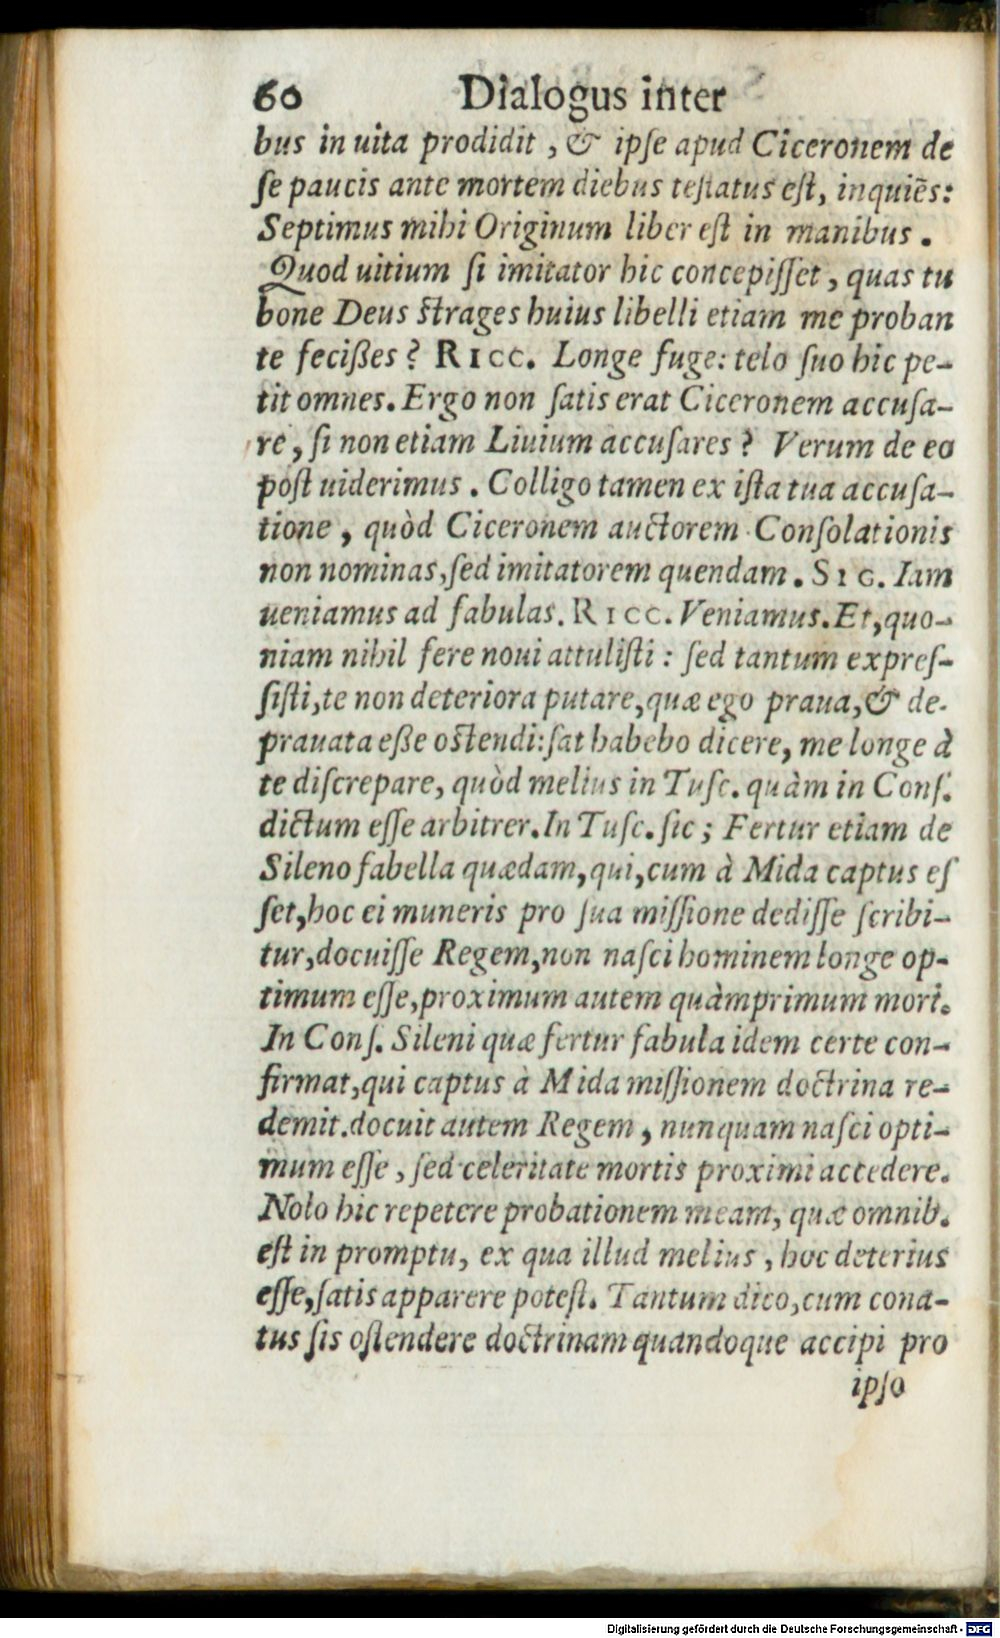 60 Dialogus inter
bus in uita prodidit, & ipſe apud Ciceronem de
ſe paucis ante mortem diebus teſtatus eſt, inquiẽs:
Septimus mihi Originum liber eſt in manibus.
Quod uitium ſi imitator hic concepiſſet, quas tu
bone Deus ſtrages huius libelli etiam me proban
te feciſſes? RICC. Longe fuge: telo ſuo hic pe-
tit omnes. Ergo non ſatis erat Ciceronem accuſa-
re, ſi non etiam Liuium accuſares? Verum de eo
poſt uiderimus. Colligo tamen ex iſta tua accuſa-
tione, quòd Ciceronem auctorem Conſolationis
non nominas, ſed imitatorem quendam. SIG. Iam
ueniamus ad fabulas. RICC. Veniamus. Et, quo-
niam nihil fere noui attuliſti: ſed tantum expreſ-
ſiſti, te non deteriora putare, quæ ego praua, & de-
prauata eſſe oſtendi: ſat habebo dicere, me longe à
te diſcrepare, quòd melius in Tuſc. quàm in Conſ.
dictum eſſe arbitrer. In Tuſc. ſic; Fertur etiam de
Sileno fabella quædam, qui, cum à Mida captus eſ
ſet, hoc ei muneris pro ſua miſſione dediſſe ſcribi-
tur, docuiſſe Regem, non naſci hominem longe op-
timum eſſe, proximum autem quàmprimum mori.
In Conſ. Sileni quæ fertur fabula idem certe con-
firmat, qui captus à Mida miſſionem doctrina re-
demit. docuit autem Regem, nunquam naſci opti-
mum eſſe, ſed celeritate mortis proximi accedere.
Nolo hic repetere probationem meam, quæ omnib.
eſt in promptu, ex qua illud melius, hoc deterius
eſſe, ſatis apparere poteſt. Tantum dico, cum cona-
tus ſis oſtendere doctrinam quandoque accipi pro
ipſo
Digitalisierung gefördert durch die Deutsche Forschungsgemeinschaft - DFG